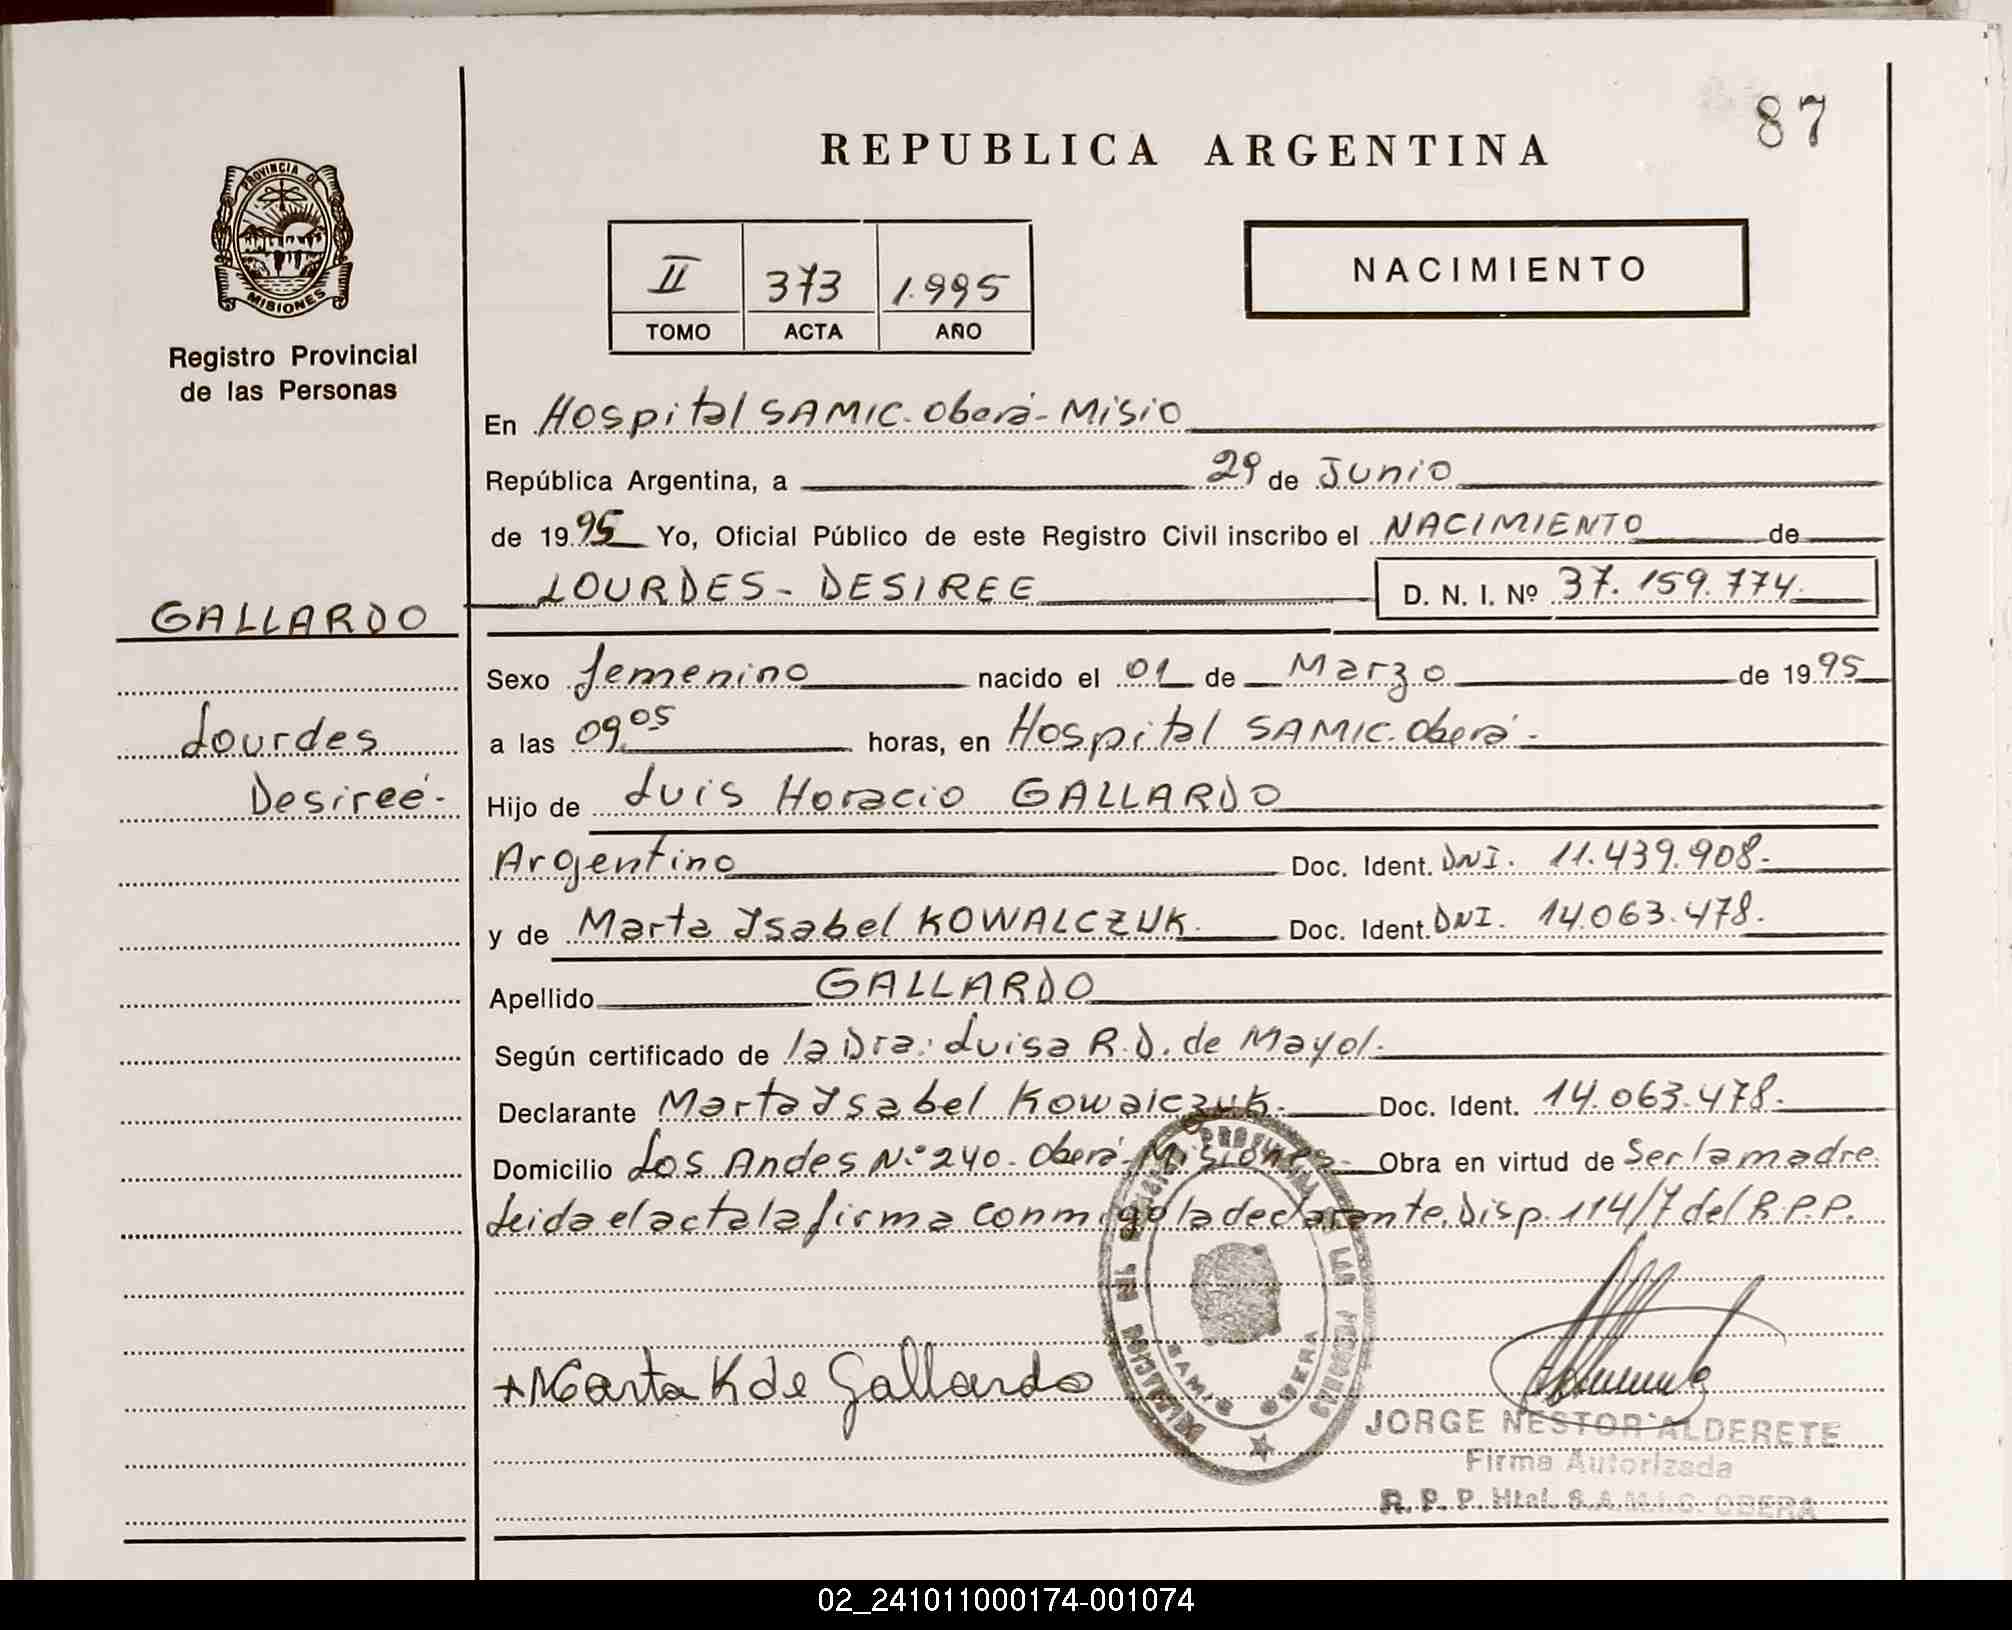 87
REPUBLICA ARGENTINA
PROVINCIA DE
MISIONES
Registro Provincial
de las Personas
II 373 1.995
TOMO ACTA AÑO
NACIMIENTO
En Hospital SAMIC. Oberá - Misio
República Argentina, a 29 de Junio
de 1995 Yo, Oficial Público de este Registro Civil inscribo el NACIMIENTO de
LOURDES - DESIREE D. N. I. Nº 37.159.774
GALLARDO
Lourdes
Desireé.
Sexo femenino nacido el 01 de Marzo de 1995
a las 09,05 horas, en Hospital SAMIC. Oberá.
Hijo de Luis Horacio GALLARDO
Argentino Doc. Ident. DNI. 11.439.908.
y de Marta Ysabel KOWALCZUK. Doc. Ident. DNI. 14.063.478.
Apellido GALLARDO
Según certificado de la Dra: Luisa R.D. de Mayol.
Declarante Marta Ysabel Kowalczuk. Doc. Ident. 14.063.478.
Domicilio Los Andes Nº 240. Oberá - Misiones - Obra en virtud de Ser la madre
Leida el acta la firma conmigo la declarante. Disp. 114/7 del R.P.P.
+ Marta K de Gallardo
SAMIC OBERA
JORGE NESTOR ALDERETE
Firma Autorizada
R. P. P. Htal. S.A.M.I.C. OBERA
02_241011000174-001074